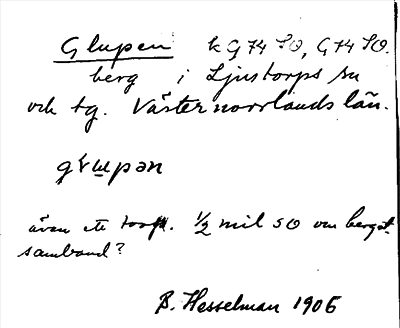 Glupen k G 74 SO, G 74 SO.
berg i Ljustorps sn
och tg. Västernorrlands län.
glupən
även ett torp. 1/2 mil SO om berget.
samband?
B. Hesselman 1905